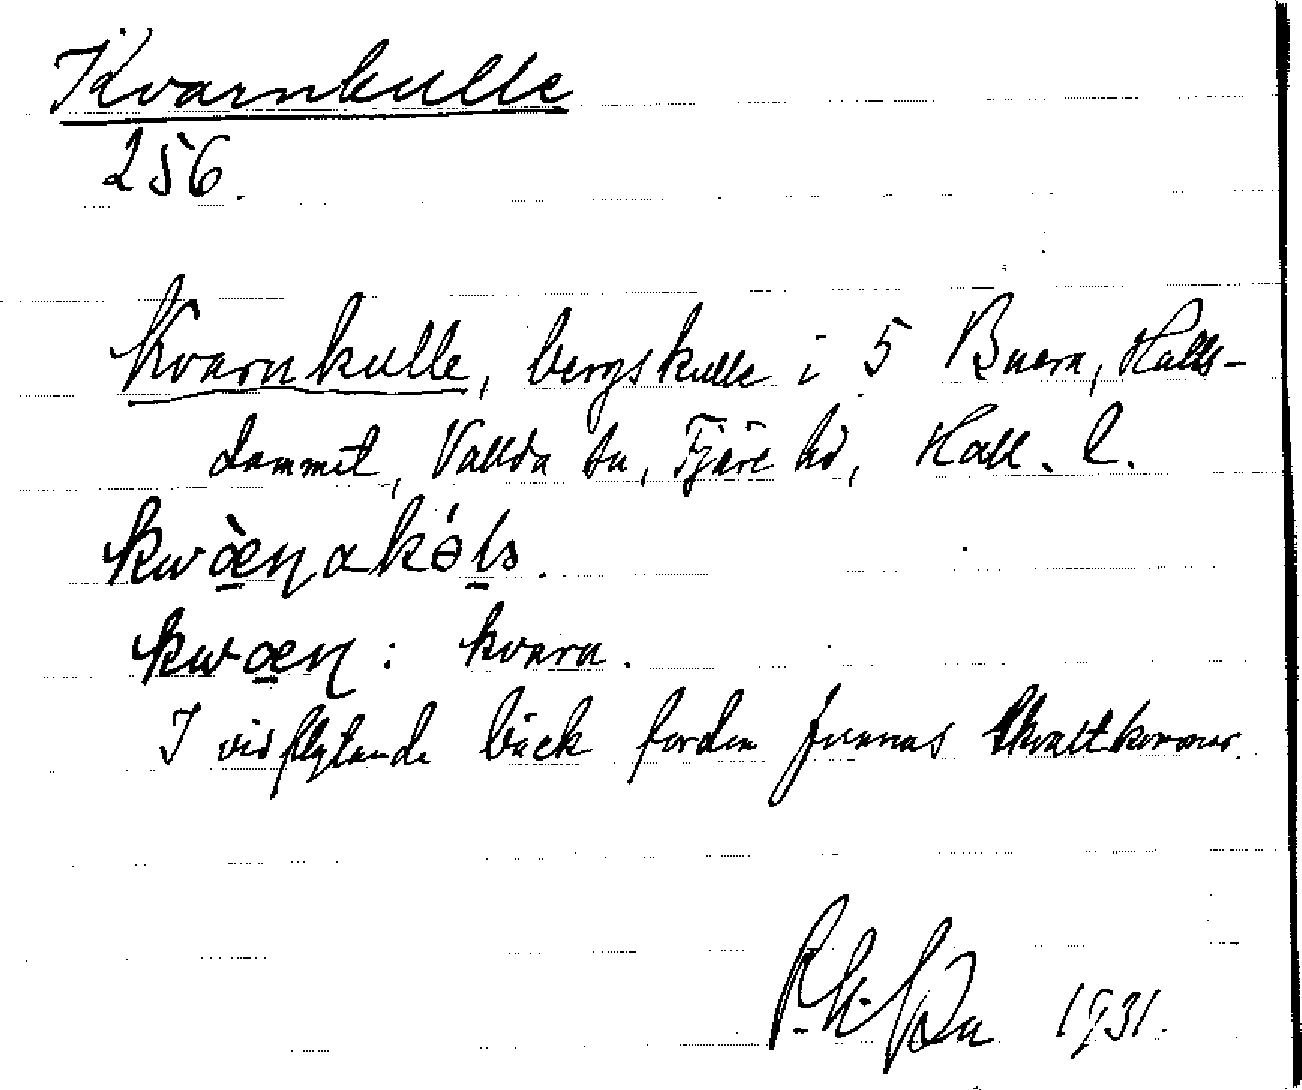 Kvarnkulle
256.
Kvarnkulle, bergskulle i 5 Buera, Halls-
dammet, Vallda sn, Fjäre hd, Hall. l.
kwæ̀ɳakɵ́lə.
kwæɳ: kvarn.
I vidflytande bäck fordom funnas skvaltkvarnar.
1931.